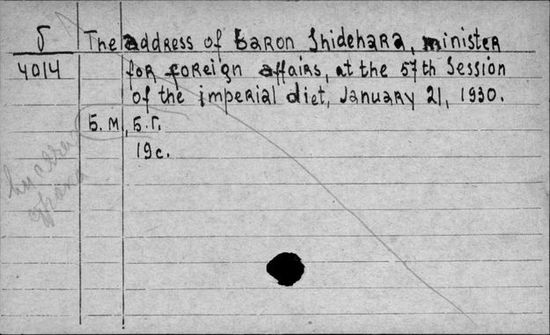 5 The address of Baron Shidehara, minister
4014 for foreign affairs, at the 57th Session
of the imperial diet, January 21, 1930.
Б. м, Б.г.
19c.